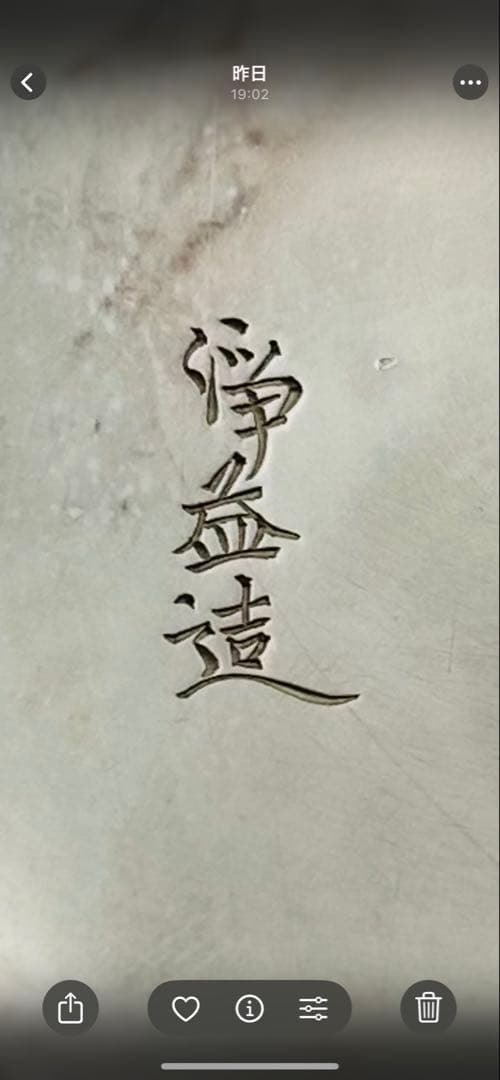 昨日
19:02
淨益造